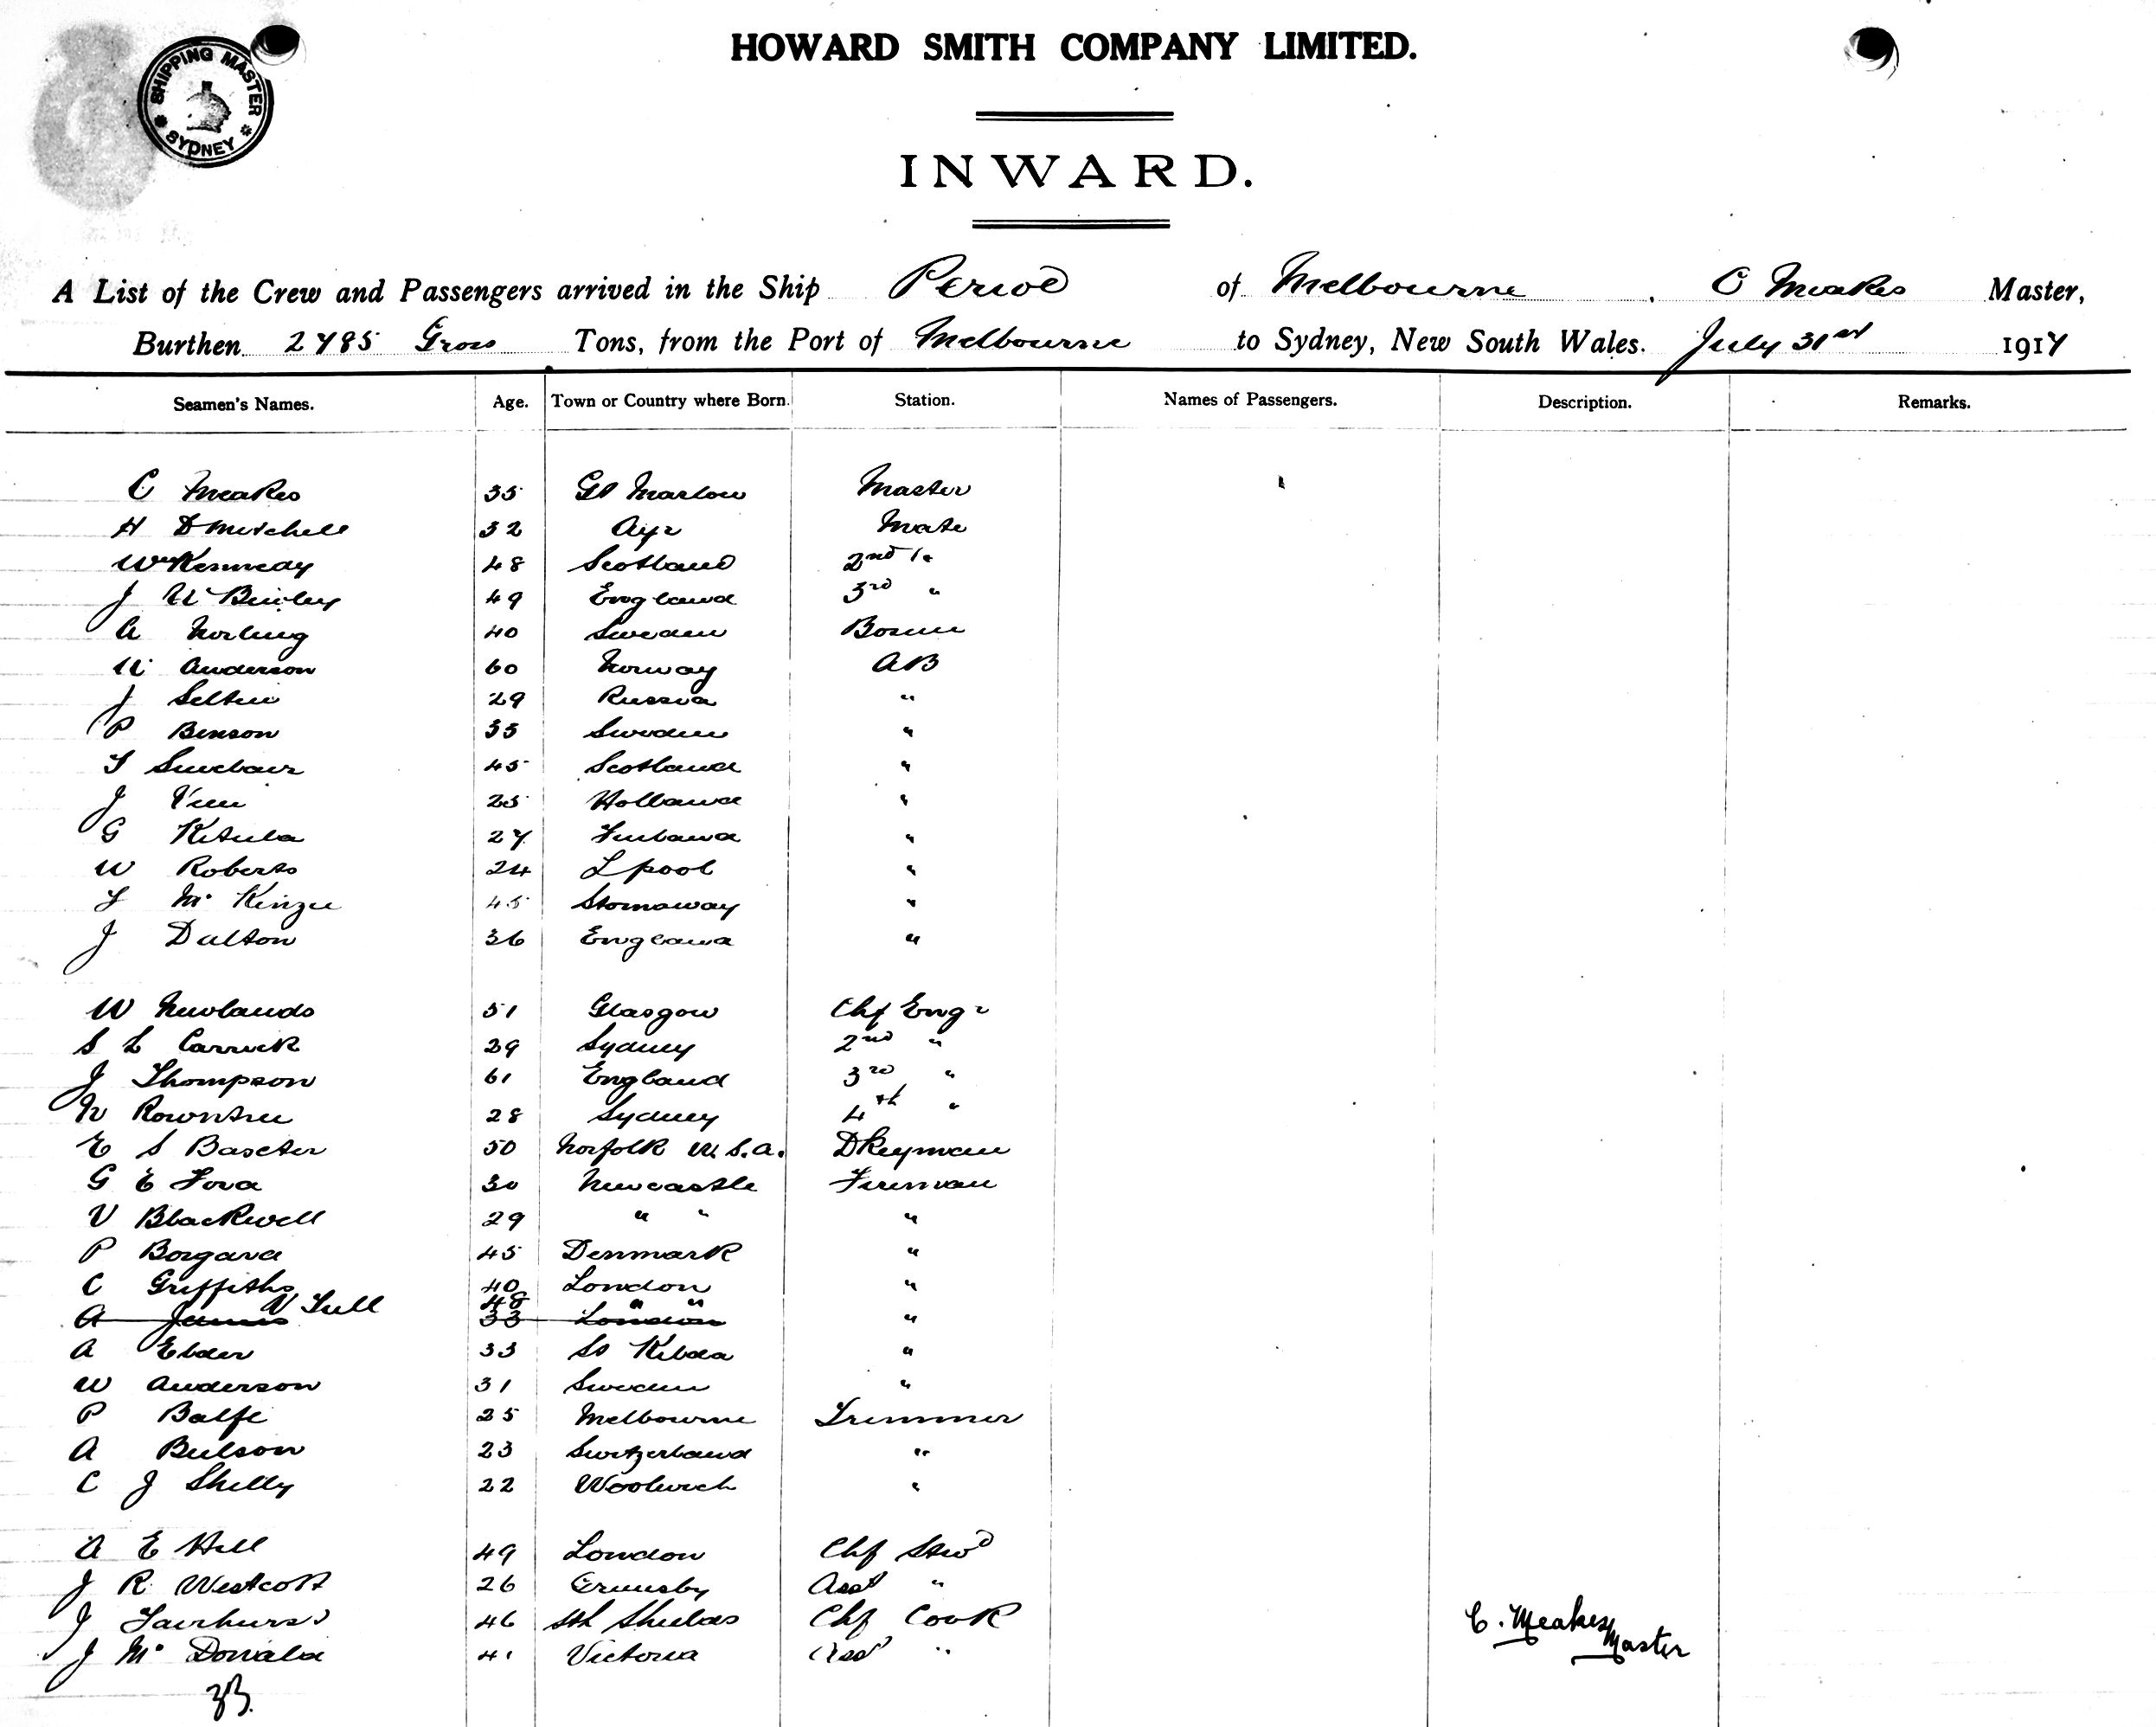 SHIPPING MASTER
SYDNEY
HOWARD SMITH COMPANY LIMITED.
INWARD.
A List of the Crew and Passengers arrived in the Ship of Melbourne, C Meakes Master,
Burthen 2485 Gross Tons, from the Port of Melbourne to Sydney, New South Wales. July 31st 1917
Seamen's Names. Age. Town or Country where Born. Station. Names of Passengers. Description. Remarks.
C Meakes 35 Gt Marlow Master
H D Mitchell 32 Ayr Mate
Wm Kennedy 48 Scotland 2nd "
J W 49 England 3rd "
A Norling 40 Sweden Bosun
Anderson 60 Norway AB
J 29 Russia "
P Benson 35 Sweden "
Sinclair 45 Scotland "
J 25 Holland "
G Ketula 27 Finland "
W Roberts 24 Lpool "
Mc Kinzie 45 Stornaway "
J Dalton 36 England "
W Newlands 51 Glasgow Chf Engr
S L Carrick 29 Sydney 2nd "
J Thompson 61 England 3rd "
N Rowntree 28 Sydney 4th "
E S Baxter 50 Norfolk U.S.A. Dkeyman
G E Ford 30 Newcastle Fireman
V Blackwell 29 " " "
P Borgard 45 Denmark "
C Griffiths 40 London "
V Tull 48 " "
A James 33 London "
A Elder 33 St Kilda "
W Anderson 31 Sweden "
P Balfe 25 Melbourne Trimmer
A Bulson 23 Switzerland "
C J Shelly 22 Woolwich "
A E Hill 49 London Chf Stwd
J R Westcott 26 Ormesby Asst "
J Fairhurst 46 Sth Shields Chf Cook
J Mc Donald 41 Victoria Asst "
C. Meakes
Master
33.